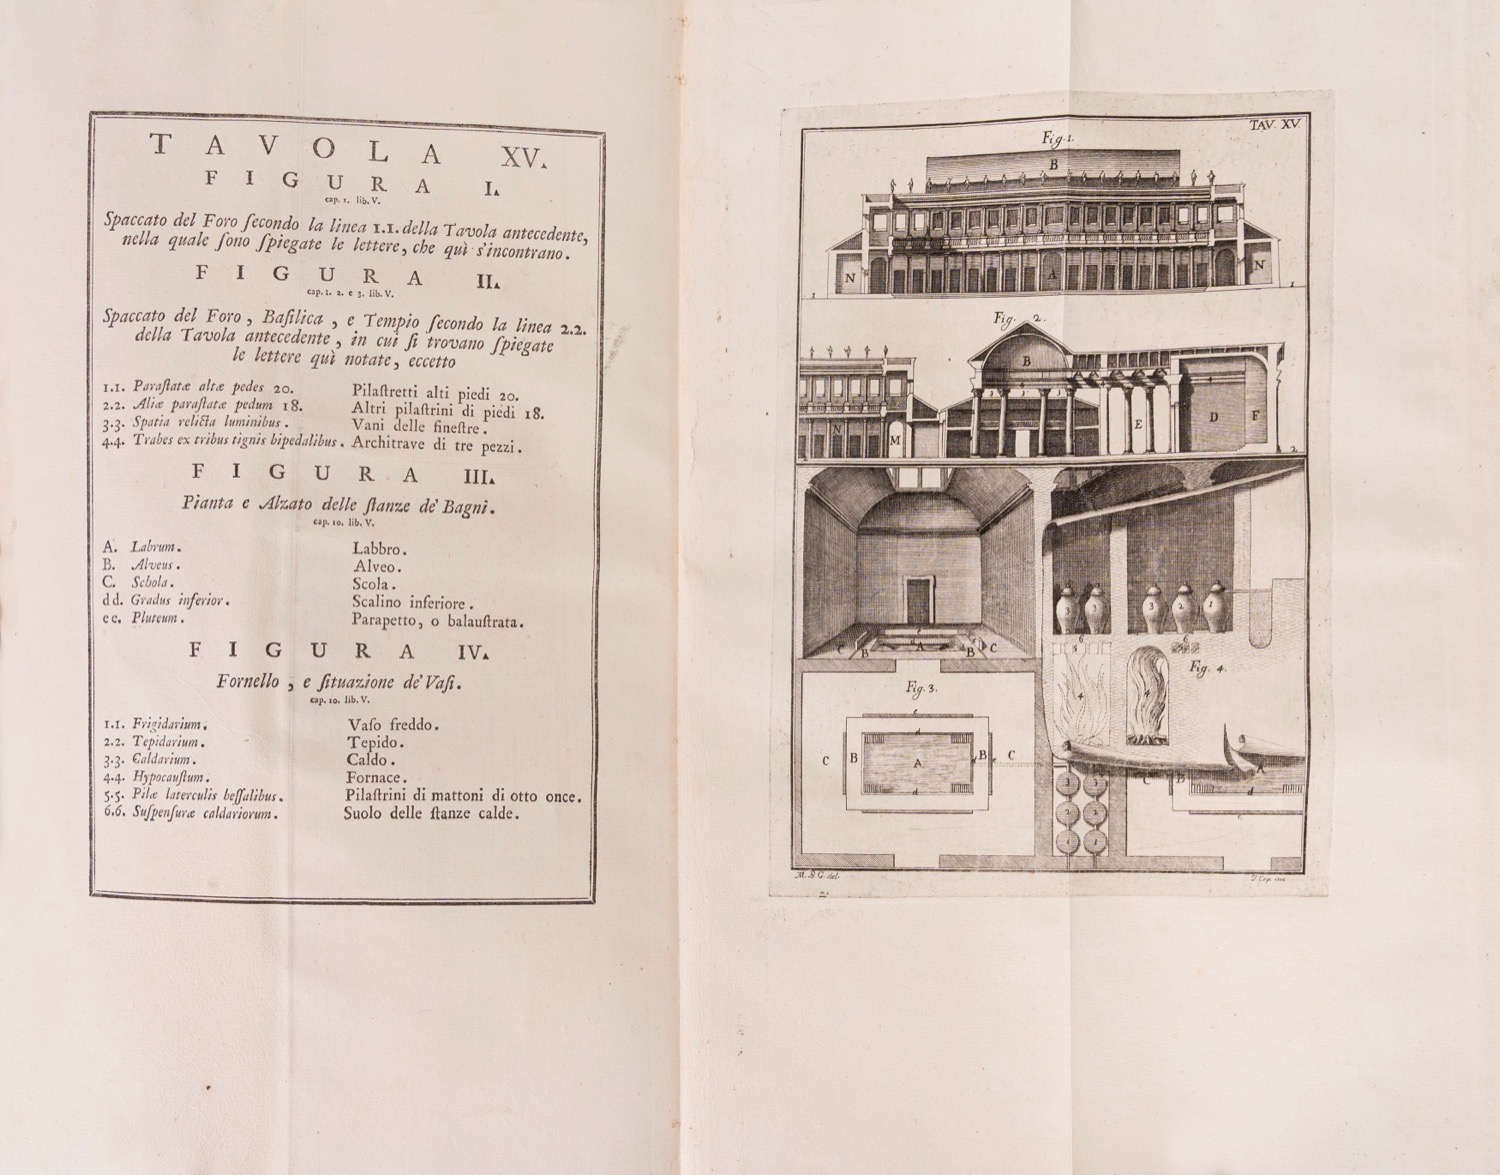 TAVOLA XV.
FIGURA I.
cap. 1. lib. V.
Spaccato del Foro ſecondo la linea 1.1. della Tavola antecedente,
nella quale ſono ſpiegate le lettere, che quì s'incontrano.
FIGURA II.
cap. 1. 2. e 3. lib. V.
Spaccato del Foro, Baſilica, e Tempio ſecondo la linea 2.2.
della Tavola antecedente, in cui ſi trovano ſpiegate
le lettere quì notate, eccetto
1.1. Paraſtatæ altæ pedes 20. Pilaſtretti alti piedi 20.
2.2. Aliæ paraſtatæ pedum 18. Altri pilaſtrini di piedi 18.
3.3. Spatia relicta luminibus. Vani delle fineſtre.
4.4. Trabes ex tribus tignis bipedalibus. Architrave di tre pezzi.
FIGURA III.
Pianta e Alzato delle ſtanze de' Bagni.
cap. 10. lib. V.
A. Labrum. Labbro.
B. Alveus. Alveo.
C. Schola. Scola.
dd. Gradus inferior. Scalino inferiore.
ee. Pluteum. Parapetto, o balauſtrata.
FIGURA IV.
Fornello, e ſituazione de' Vaſi.
cap. 10. lib. V.
1.1. Frigidarium. Vaſo freddo.
2.2. Tepidarium. Tepido.
3.3. Caldarium. Caldo.
4.4. Hypocauſtum. Fornace.
5.5. Pilæ laterculis beſſalibus. Pilaſtrini di mattoni di otto once.
6.6. Suſpenſuræ caldariorum. Suolo delle ſtanze calde.
TAV. XV.
Fig. 1.
B
N A N
1 1
Fig. 2.
B
4 4
3 3 3
N M E D F
2
3 3 3 2 1
6 6
5
4 4
Fig. 4.
e
C B A B C
Fig. 3.
e
d
C B A d B e C
d
3 3
2 2
1 1
C B A
d
e
M. B. G. del.